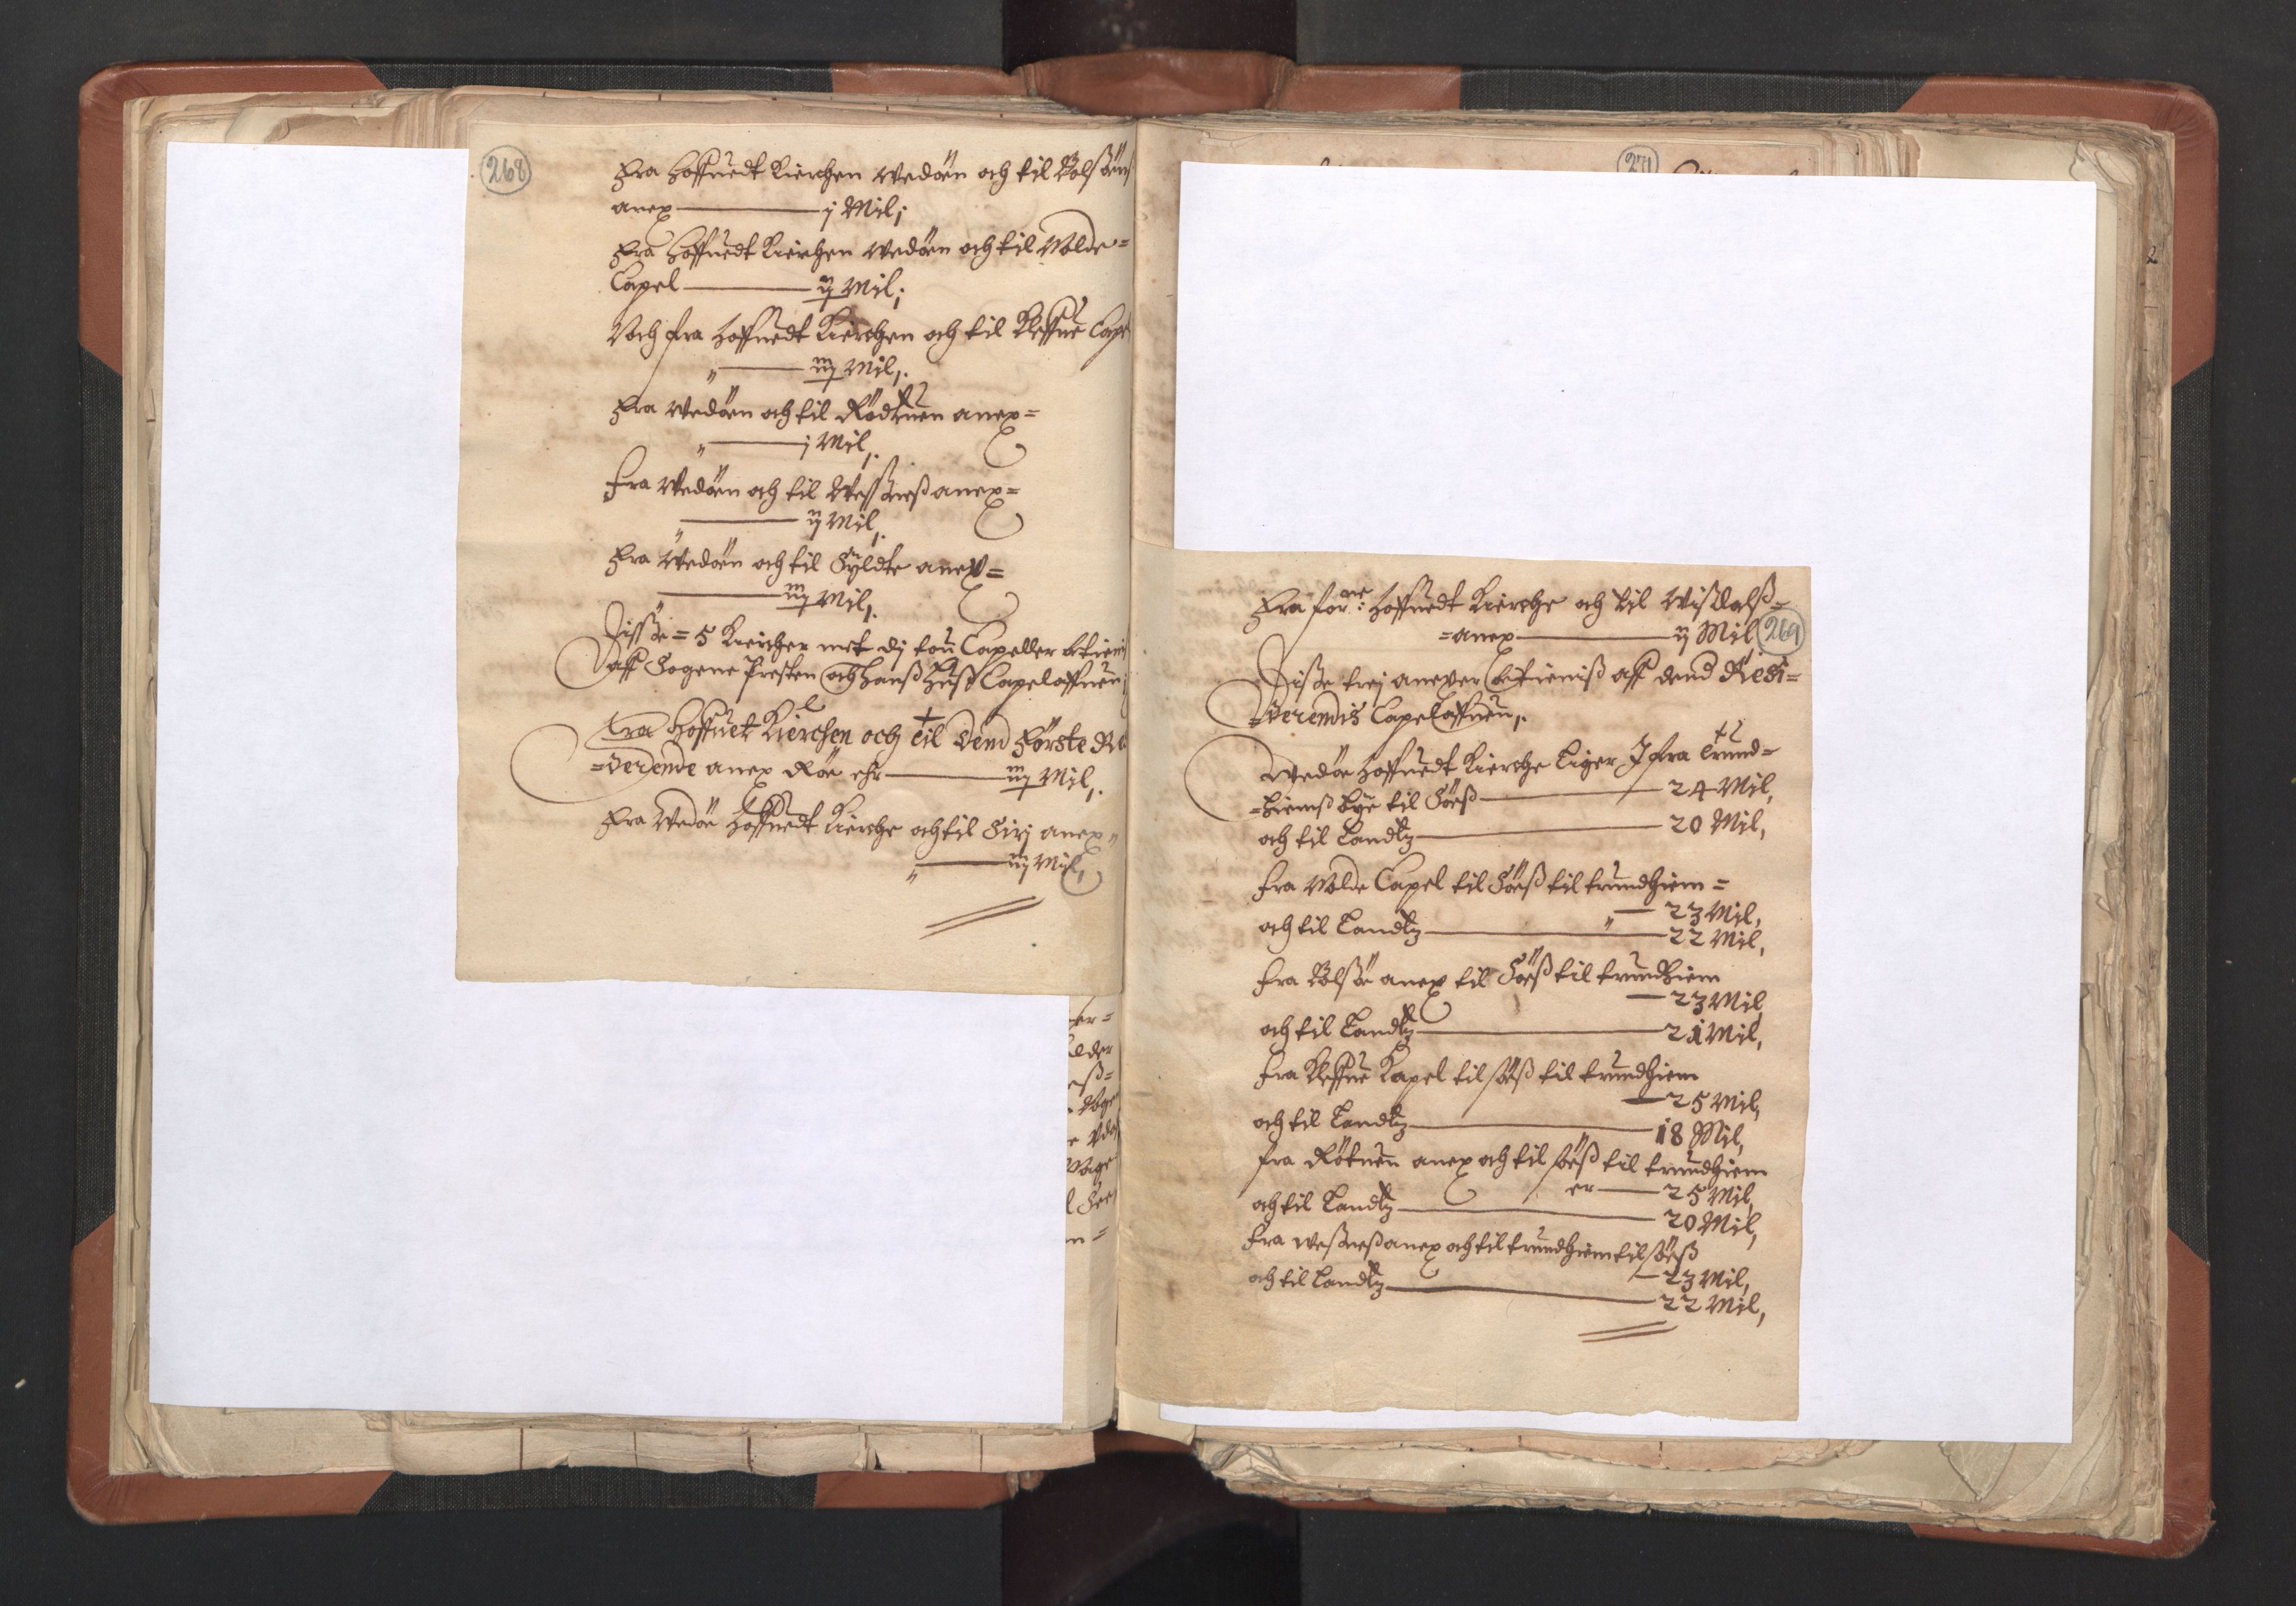 268
Fra Hoffuedt Kierchen Wedøen och til Bolsøens
anex — j Mil;
Fra Hoffuedt Kierchen Wedøen och til Molde=
Capel — ij Mil;
Noch fra Hoffuedt Kierchen och til Kleffue Cape
„ — iij Mil,.
Fra Wedøen och til Rødtuen anex=
„ — j Mil,.
Fra Wedøen och til Wessneß anex=
„ — ij Mil,.
Fra Wedøen och til Syldte anex=
— iij Mil,.
Disse = 5 Kiercher met dj tou Capeller betienis
aff Sogene Presten och hanß Huß Capelaffnen;
Fra Hoffuet Kierchen och til Dend Første Re
=Derende anex Røe ehr — iij Mil,.
Fra Wedøe Hoffuedt Kierche och til Sirj anex„
„ — iij Mil,
er=
lder
eß=
n=
271
2
Fra for.ne: Hoffuedt Kierche och til Wisdalß=
=anex — ij Mil
269
Disse trej anexer betieniß aff dend Resi=
=Derendis Capellaffnen,.
Wedøe Hoffuedt Kierche Liger Ifra Trund=
=hiemß bye til Söeß — 24 Mil,
och til Landtz — 20 Mil,
Fra Molde Capel til Söeß til trundhiem=
„ — 23 Mil,
och til Landtz — 22 Mil,
Fra Bolsøe anex til Söeß til trundhiem
— 23 Mil
och til Landtz — 21 Mil,
Fra Kleffue Kapel til söeß til trundhiem
— 25 Mil,
och til Landtz — 18 Mil,
Fra Røtuen anex och til söeß til trundhiem
er — 25 Mil,
och til Landtz — 20 Mil,
Fra Wessneß anex och til trundhiem til söeß
— 23 Mil,
och til Landtz — 22 Mil,